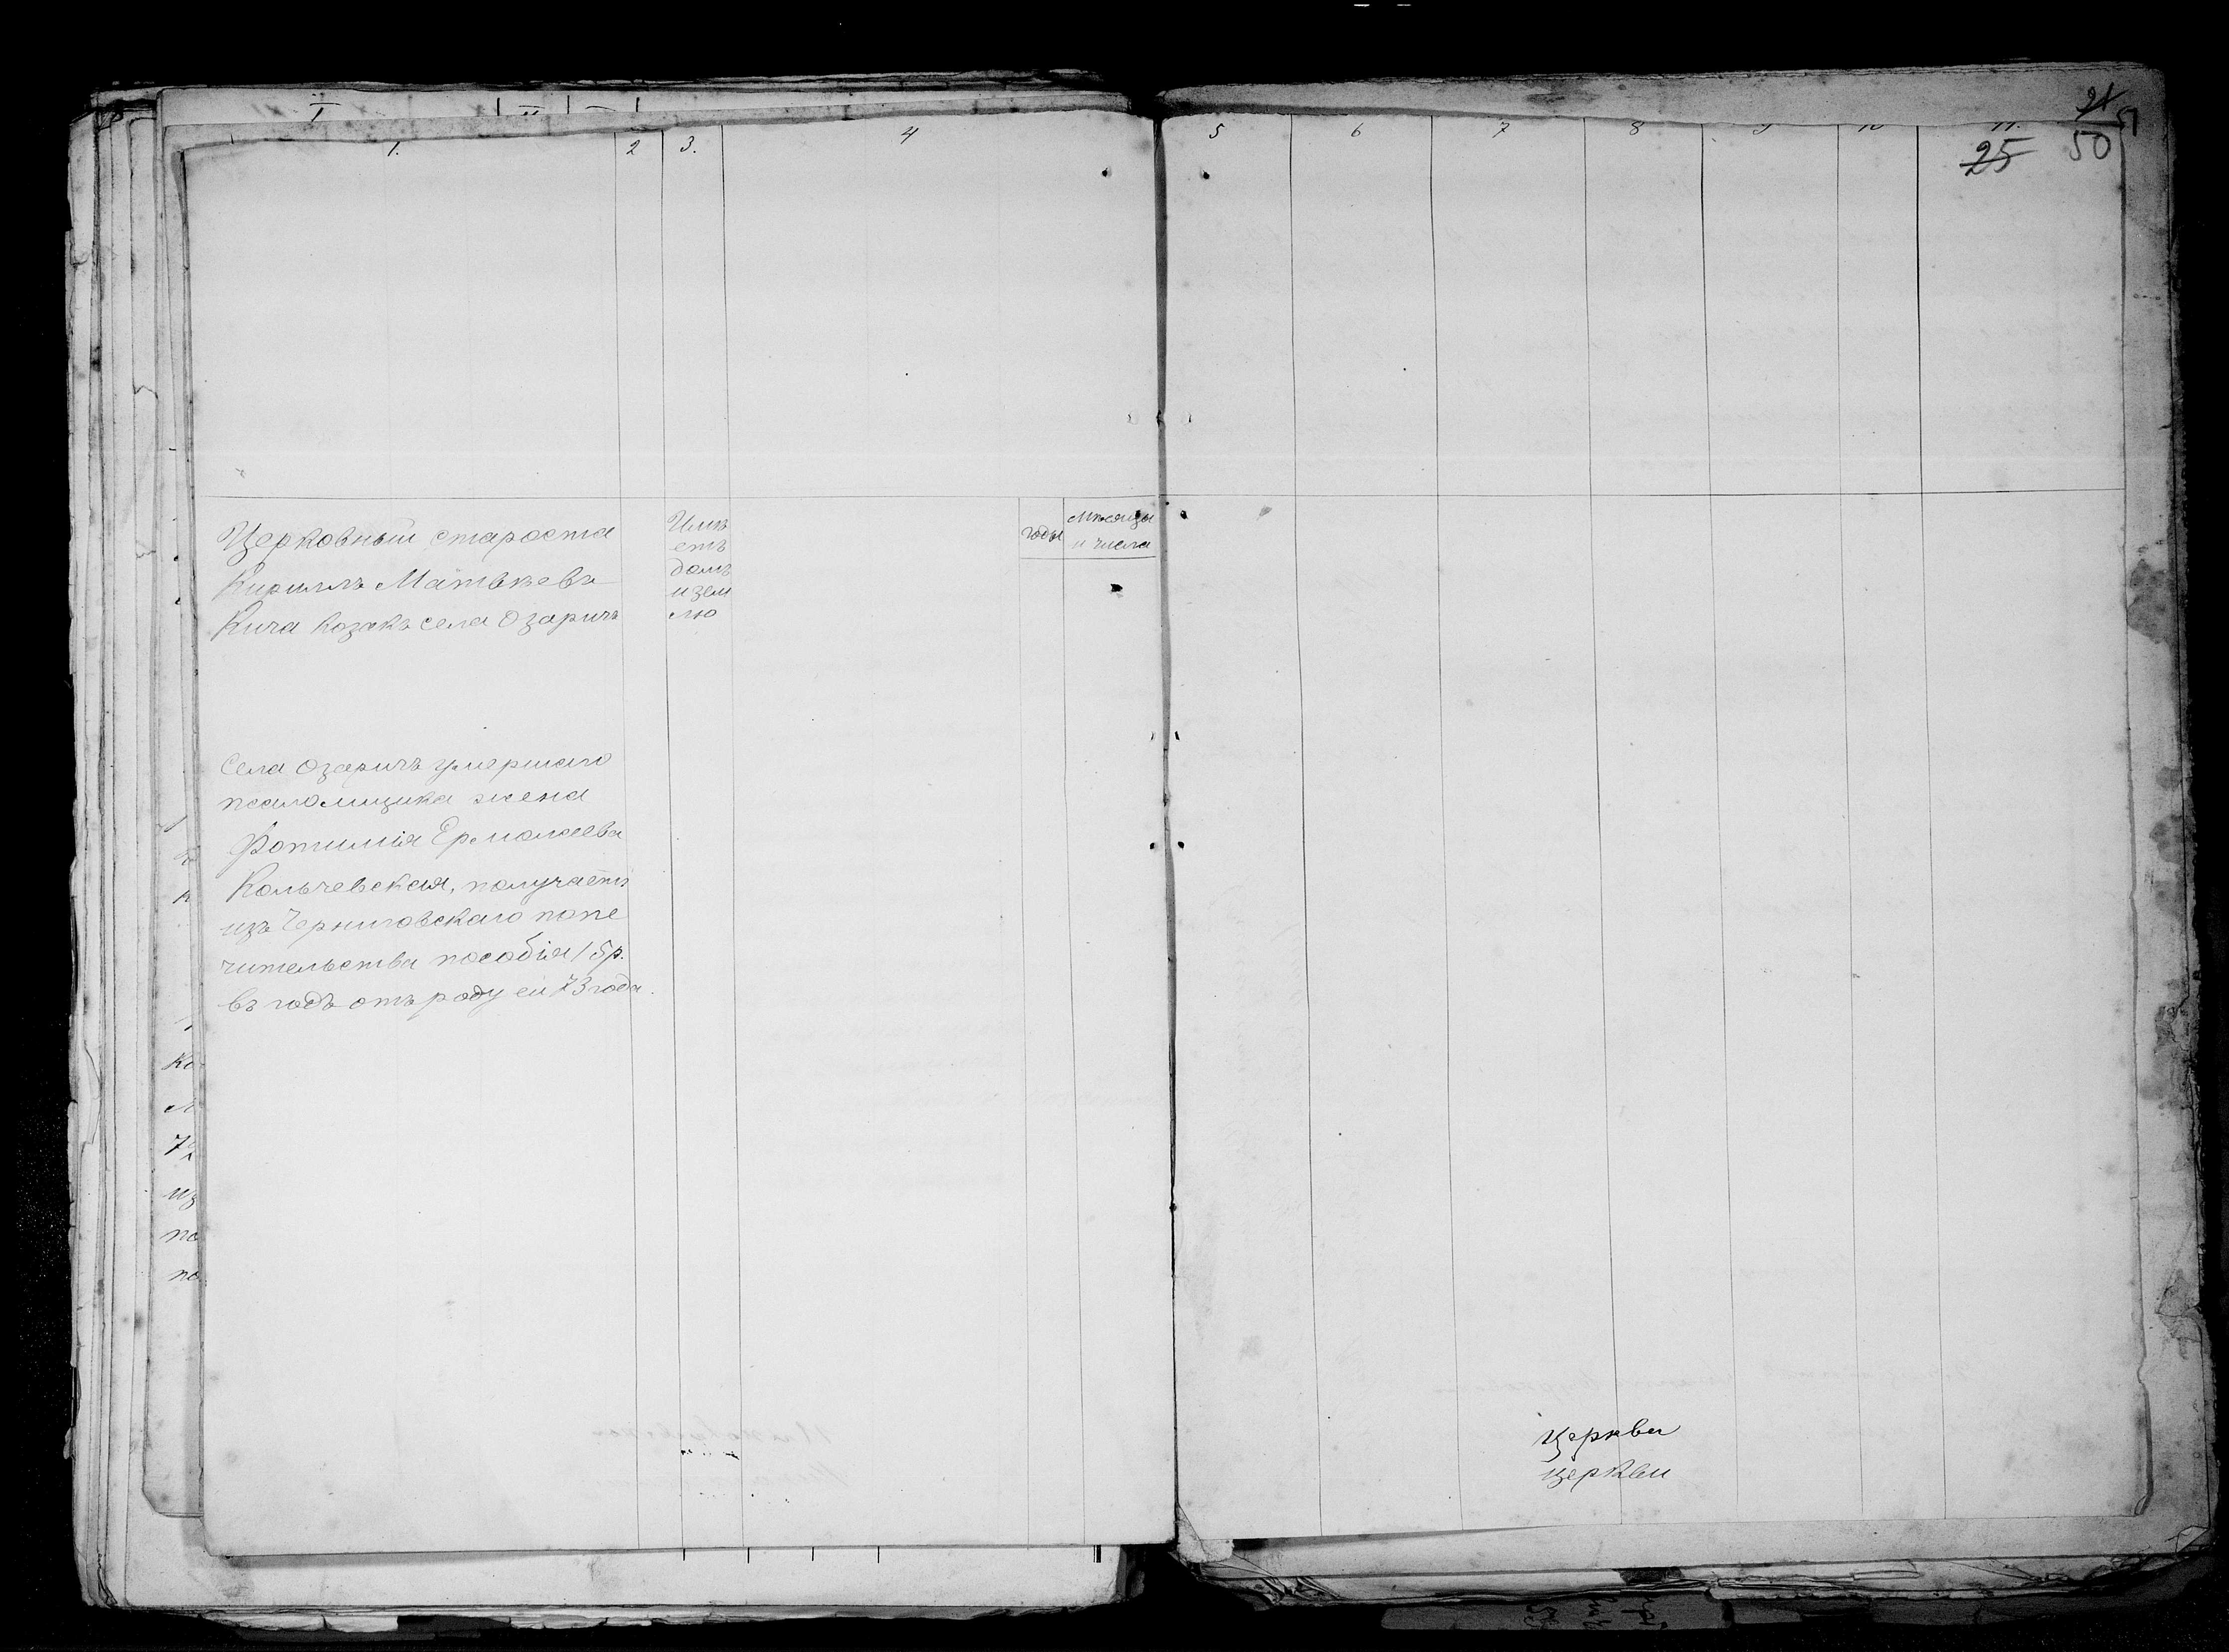 1.
2
3.
4
5
6
7
8
11.
21
51
25
50
Церковный староста
Кириллъ Матвѣевъ
Кича козакъ села Озаричъ
Имѣ
етъ
домъ
и зем
лю
годы
мѣсяцы
и числа
Села Озаричъ умершаго
псаломщика жена
Фотинія Ермолаева
Кольчевская, получаетъ
изъ Черниговскаго попе
чительства пособія 15 р.
въ годъ отъ роду ей 73 года.
Церкви
церкви